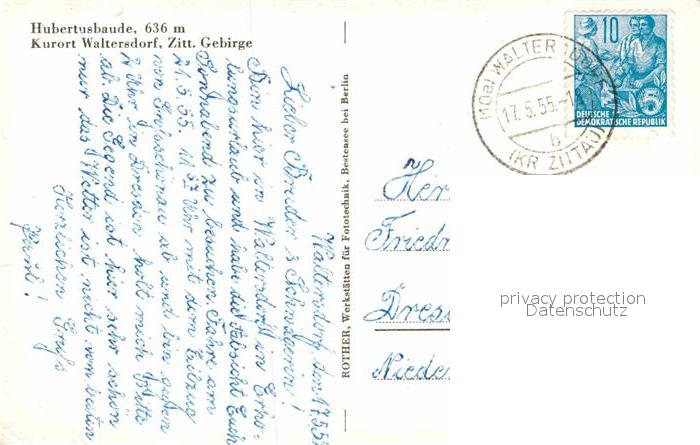 Hubertusbaude, 636 m
Kurort Waltersdorf, Zitt. Gebirge
Waltersdorf den 17.5.55
Lieber Bruder & Schwägerin!
Bin hier in Waltersdorf in Erho-
lungsurlaub und habe die Absicht Euch
Sonnabend zu besuchen. Fahre am
21.5.55. 11.57 Uhr mit dem Eilzug
von Großschönau ab und bin gegen
2 Uhr in Dresden holt mich bitte
ab. Die Gegend ist hier sehr schön
nur das Wetter ist nicht vom besten
Herzlichen Gruß
Paul!
ROTHER, Werkstätten für Fototechnik, Bestensee bei Berlin
(10a) WALTERSDORF
17.5.55.-1
b
(KR ZITTAU)
10
5
DEUTSCHE
DEMOKRATISCHE REPUBLIK
Her
Friedr
Dres
Niede
privacy protection
Datenschutz